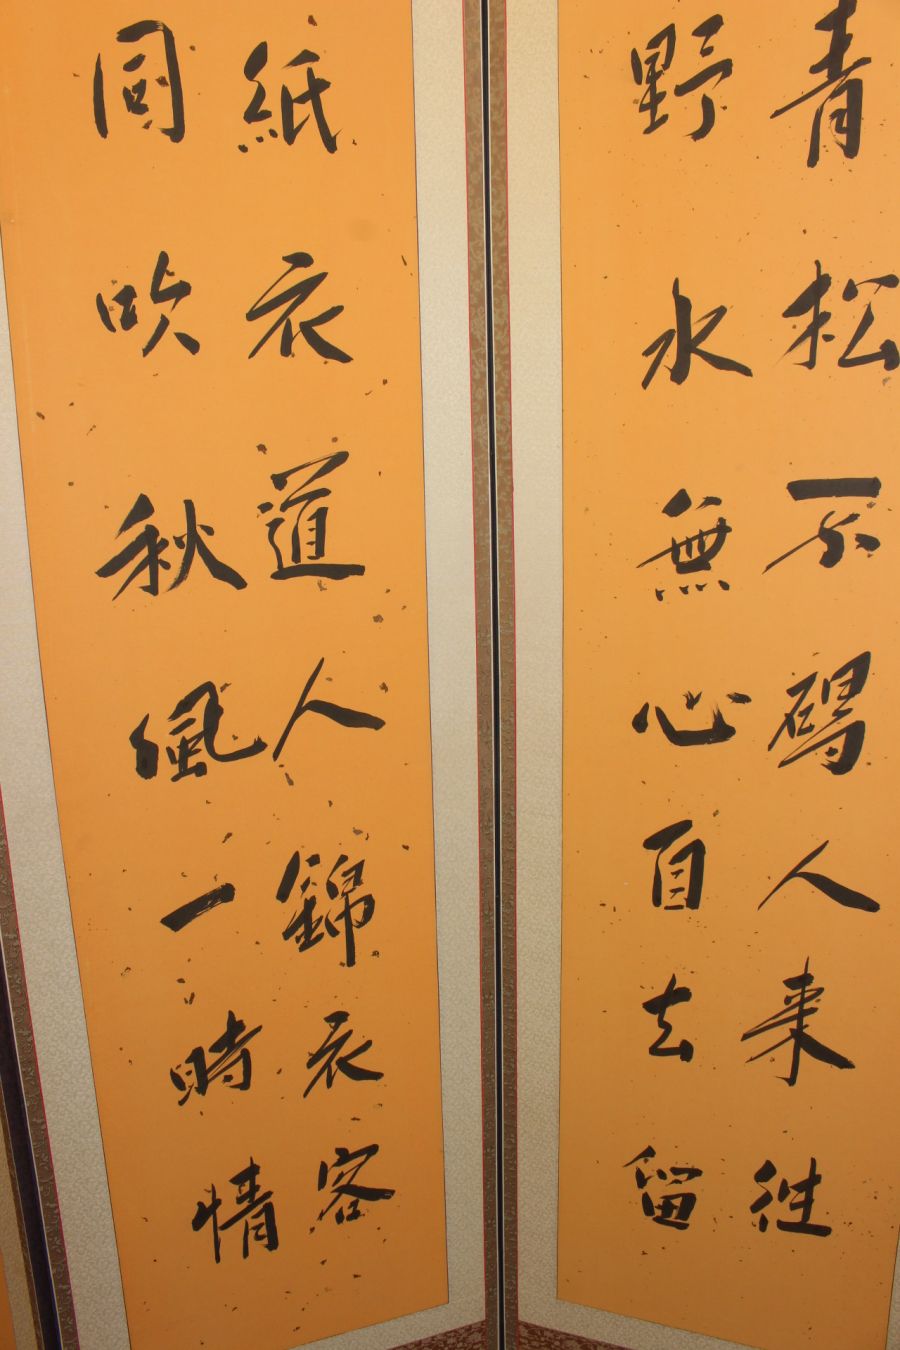 青松不碍人来往
野水無心自去留
紙衣道人錦衣客
同吹秋風一時情